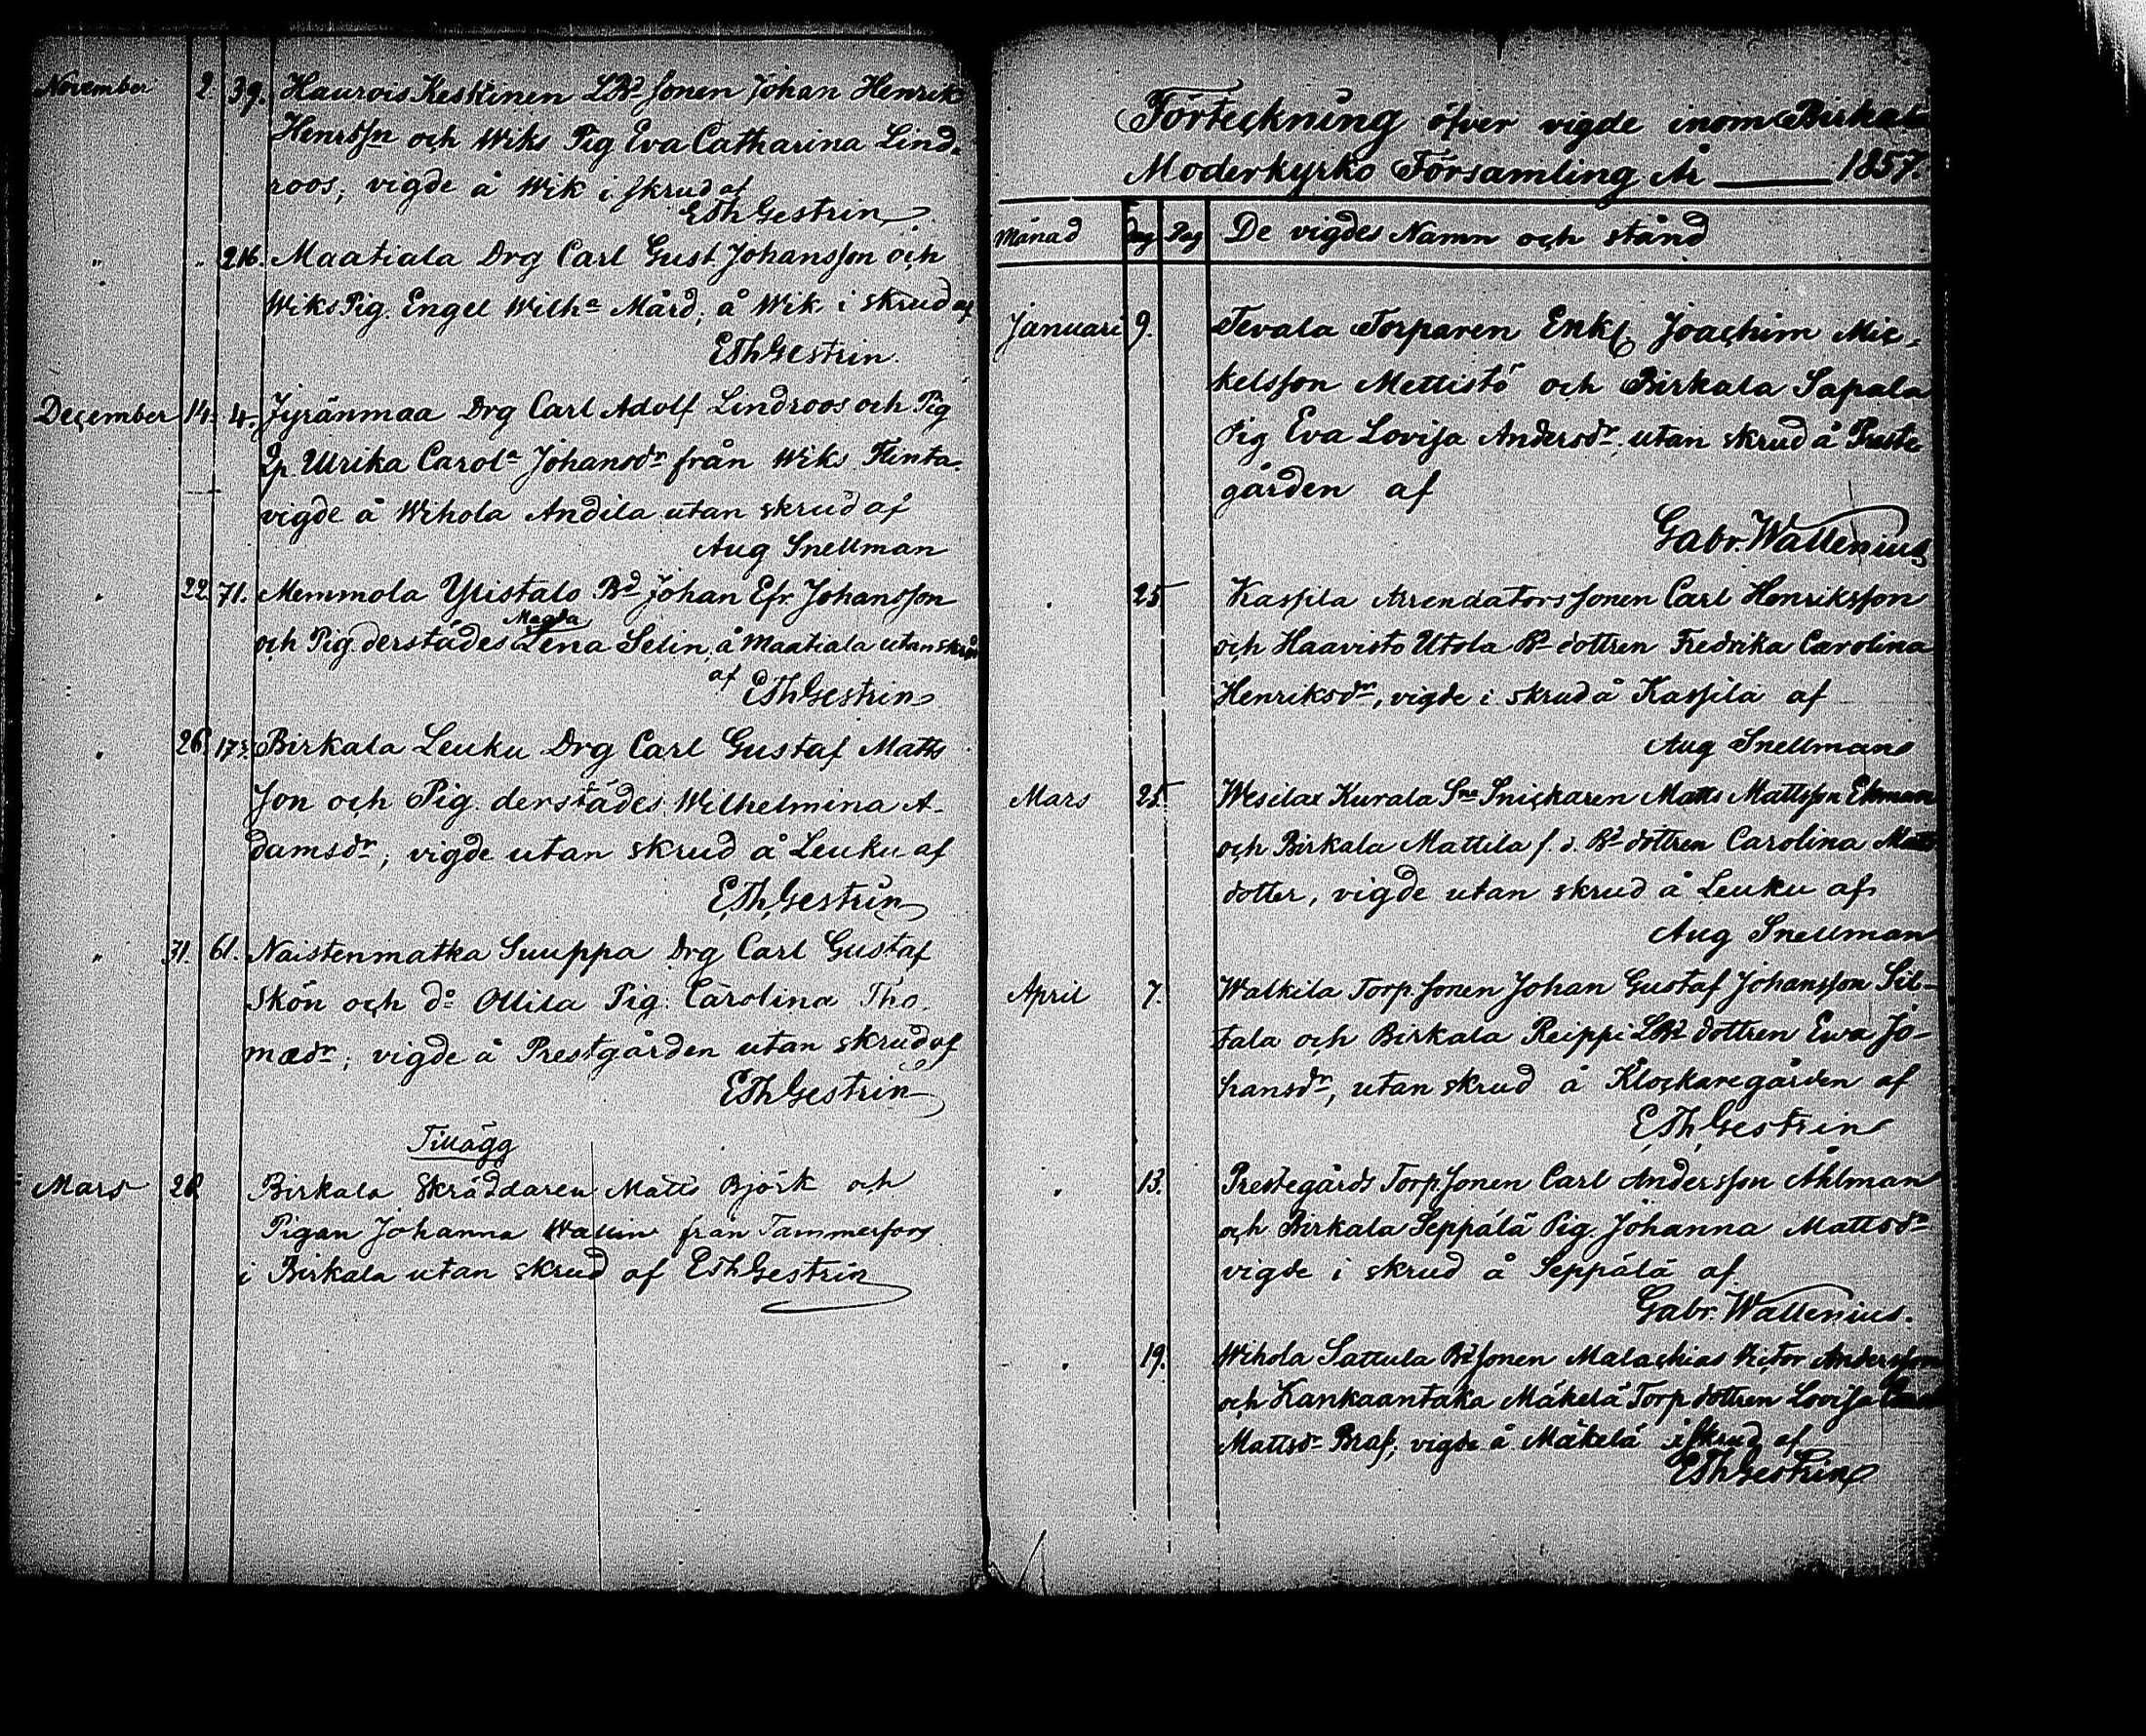 November 2. 39. Haurois Keskinen LBd sonen Johan Henrik
Henrsson och Wiks Pig Eva Catharina Lind-
roos; vigde å Wik i skrud af
EThGestrin
" " 216. Maatiala Drg Carl Gust Johansson och
Wiks Pig. Engel Wilha Mård; å Wik i skrud af
EThGestrin.
December 14. 4. Jyränmaa Drg Carl Adolf Lindroos och Pig
Ulrika Carola Johansdr från Wiks Flinta.
vigde å Wihola Andila utan skrud af
Aug Snellman
" 22. 71. Memmola Ylistalo Bd Johan Efr. Johansson
Magda
och Pig. derstädes Lena Selin, å Maatiala utan skrud
af EThGestrin
" 26. Birkala Leuku Drg Carl Gustaf Matts
son och Pig. derstädes Wilhelmina A-
damsdr; vigde utan skrud å Leuku af
E,Th,Gestrin
" 31. 61. Naistenmatka Suuppa Drg Carl Gustaf
Skön och do Ollila Pig. Carolina Tho-
mædr; vigde å Prestgården utan skrud af
EThGestrin
Tillägg
Mars 28 Birkala Skräddaren Matts Björk och
Pigan Johanna Wallin från Tammerfors
i Birkala utan skrud af EThGestrin
Förteckning öfver vigde inom Birkala
Moderkyrko Församling År 1857.
Månad Dag Pag De vigdes Namn och stånd
Januari 9. Tevala Torparen Enkl. Joachim Mic-
kelsson Mettistö och Birkala Sapala
Pig Eva Lovisa Andersdr; utan skrud å Preste
gården af
Gabr. Wallenius
" 25 Kassila Arrendators sonen Carl Henriksson
och Haavisto Utola Bd dottren Fredrika Carolina
Henriksdr, vigde i skrud å Kassila af
Aug Snellman
Mars 25. Wesilax Kurala Sne Snickaren Matts Mattsson Ekman
och Birkala Mattila f. d. Bd dottren Carolina Matts
dotter, vigde utan skrud å Leuku af
Aug Snellman
April 7. Walkila Torp. sonen Johan Gustaf Johansson Sil-
tala och Birkala Reippi LBd dottren Ewa Jo-
hansdr, utan skrud å Klockaregården af
E,Th,Gestrin
" 13. Prestegårds Torp sonen Carl Andersson Åhlman
och Birkala Seppälä Pig. Johanna Mattsdr
vigde i skrud å Seppälä af
Gabr. Wallenius.
" 19. Wihola Sattula Bd sonen Malachias Victor Andersson
och Kankaantaka Mäkelä Torp dottren Lovisa
Mattsdr Braf; vigde å Mäkelä i skrud af
EThGestrin